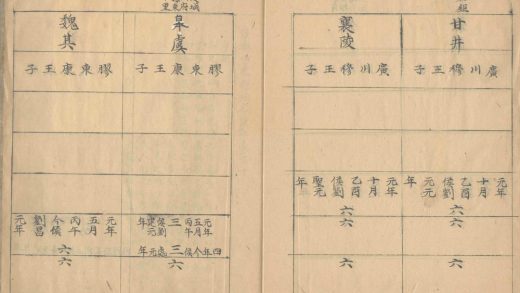 甘井
廣川穆王子
元年
十月
乙酉
侯劉
元元
年
六
六
襄陵
廣川穆王子
元年
十月
乙酉
侯劉
聖元
年
六
六
皋虞
膠東康王子
元年
五月
丙午
三
侯劉
建元
年
四年今侯
三
處元年
六
魏其
膠東康王子
元年
五月
丙午
今侯
劉昌
元年
六
六